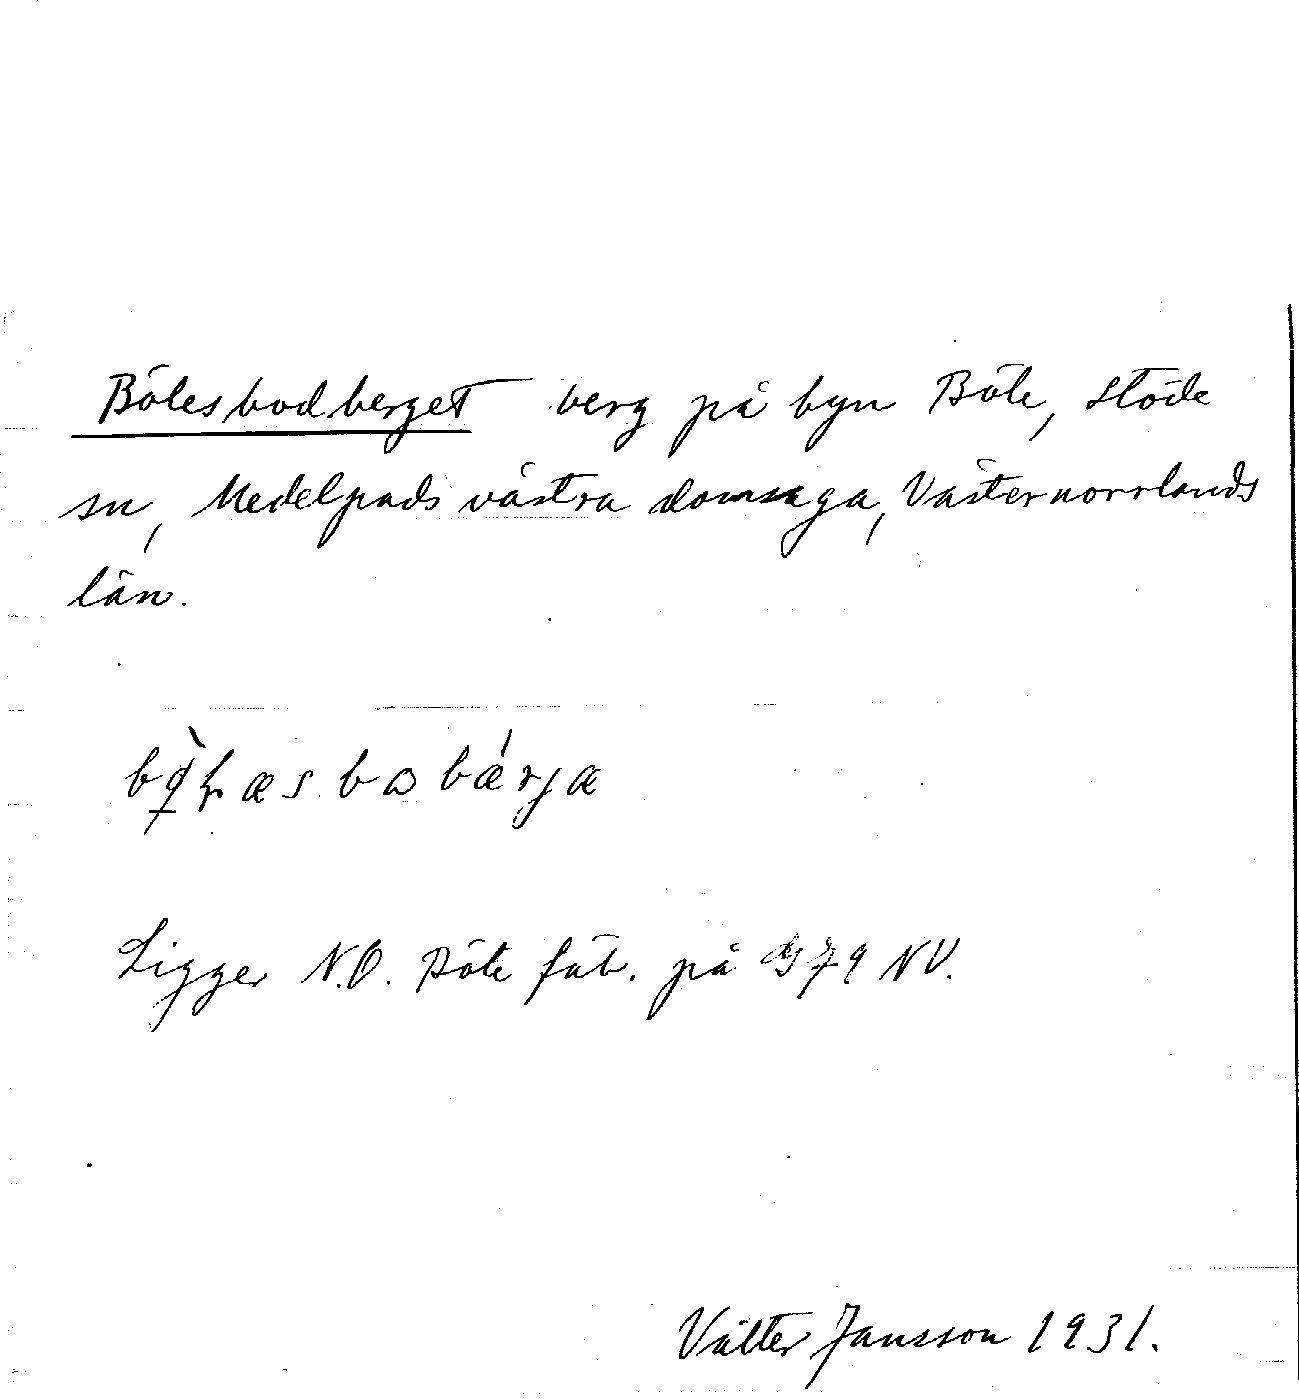 Bölesbodberget berg på byn Böle, Stöde
sn, Medelpads västra domsaga, Västernorrlands
län.
Ligger N.O. Böle fäb. på G 79 NV.
Valter Jansson 1931.